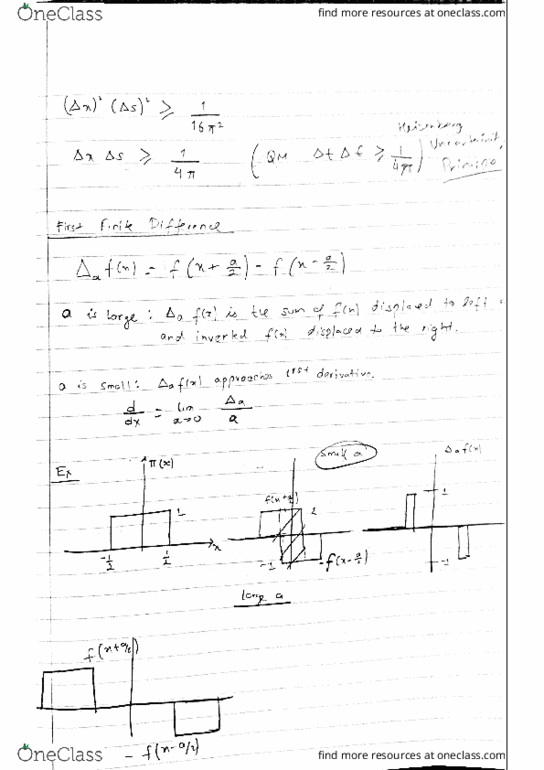 OneClass
find more resources at oneclass.com
(Δx)² (Δs)² ≥ 1/16π²
Δx Δs ≥ 1/4π (QM Δt Δf ≥ 1/4π) Heisenberg
First Finite Difference
Δₐ f(x) = f(x + a/2) - f(x - a/2)
a is large: Δₐ f(x) is the sum of f(x) displaced to left
and inverted f(x) displaced to the right.
a is small: Δₐ f(x) approaches 1st derivative.
d/dx = lim a→0 Δₐ/a
Ex
Π(x)
1
-1/2
1/2
x
small a
f(x+a/2)
2
-1
-f(x-a/2)
Δa f(x)
1
-1
large a
f(x+a/2)
- f(x-a/2)
OneClass
find more resources at oneclass.com